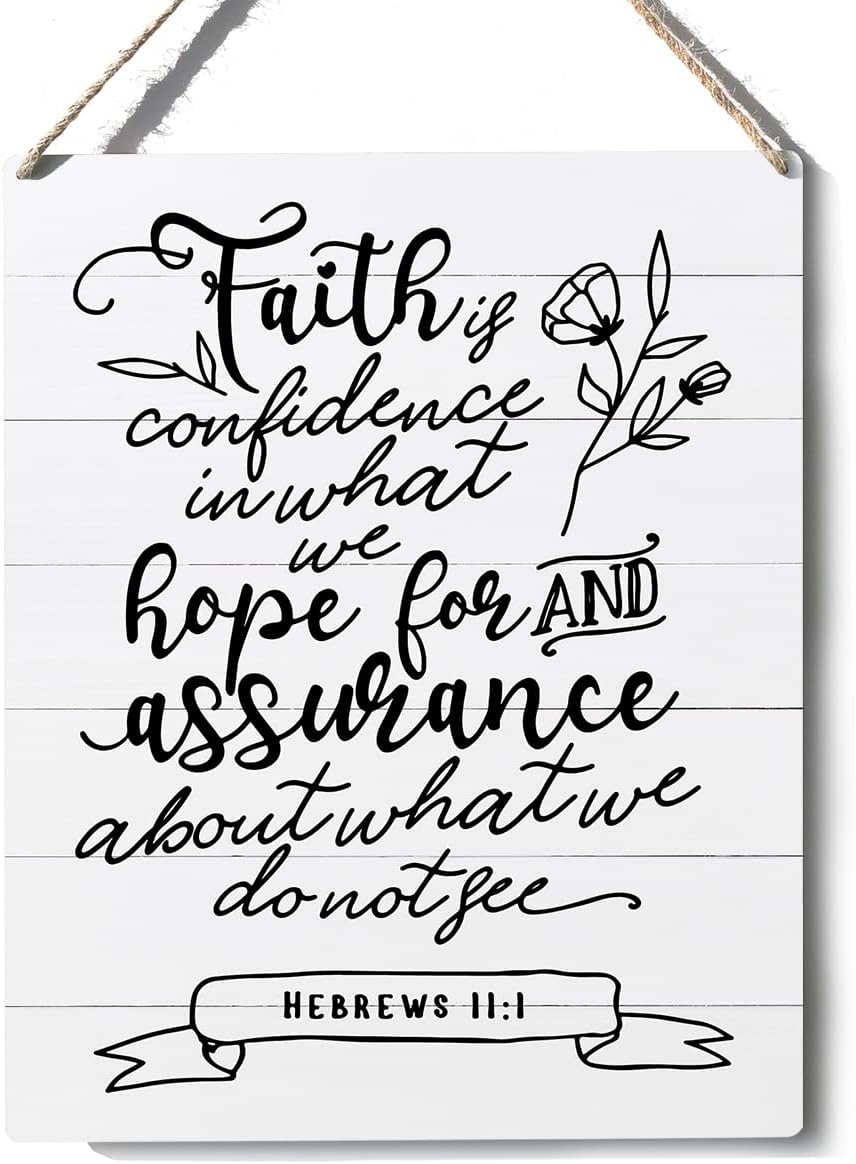 Faith is
confidence
in what
we
hope for AND
assurance
about what we
do not see
HEBREWS 11:1